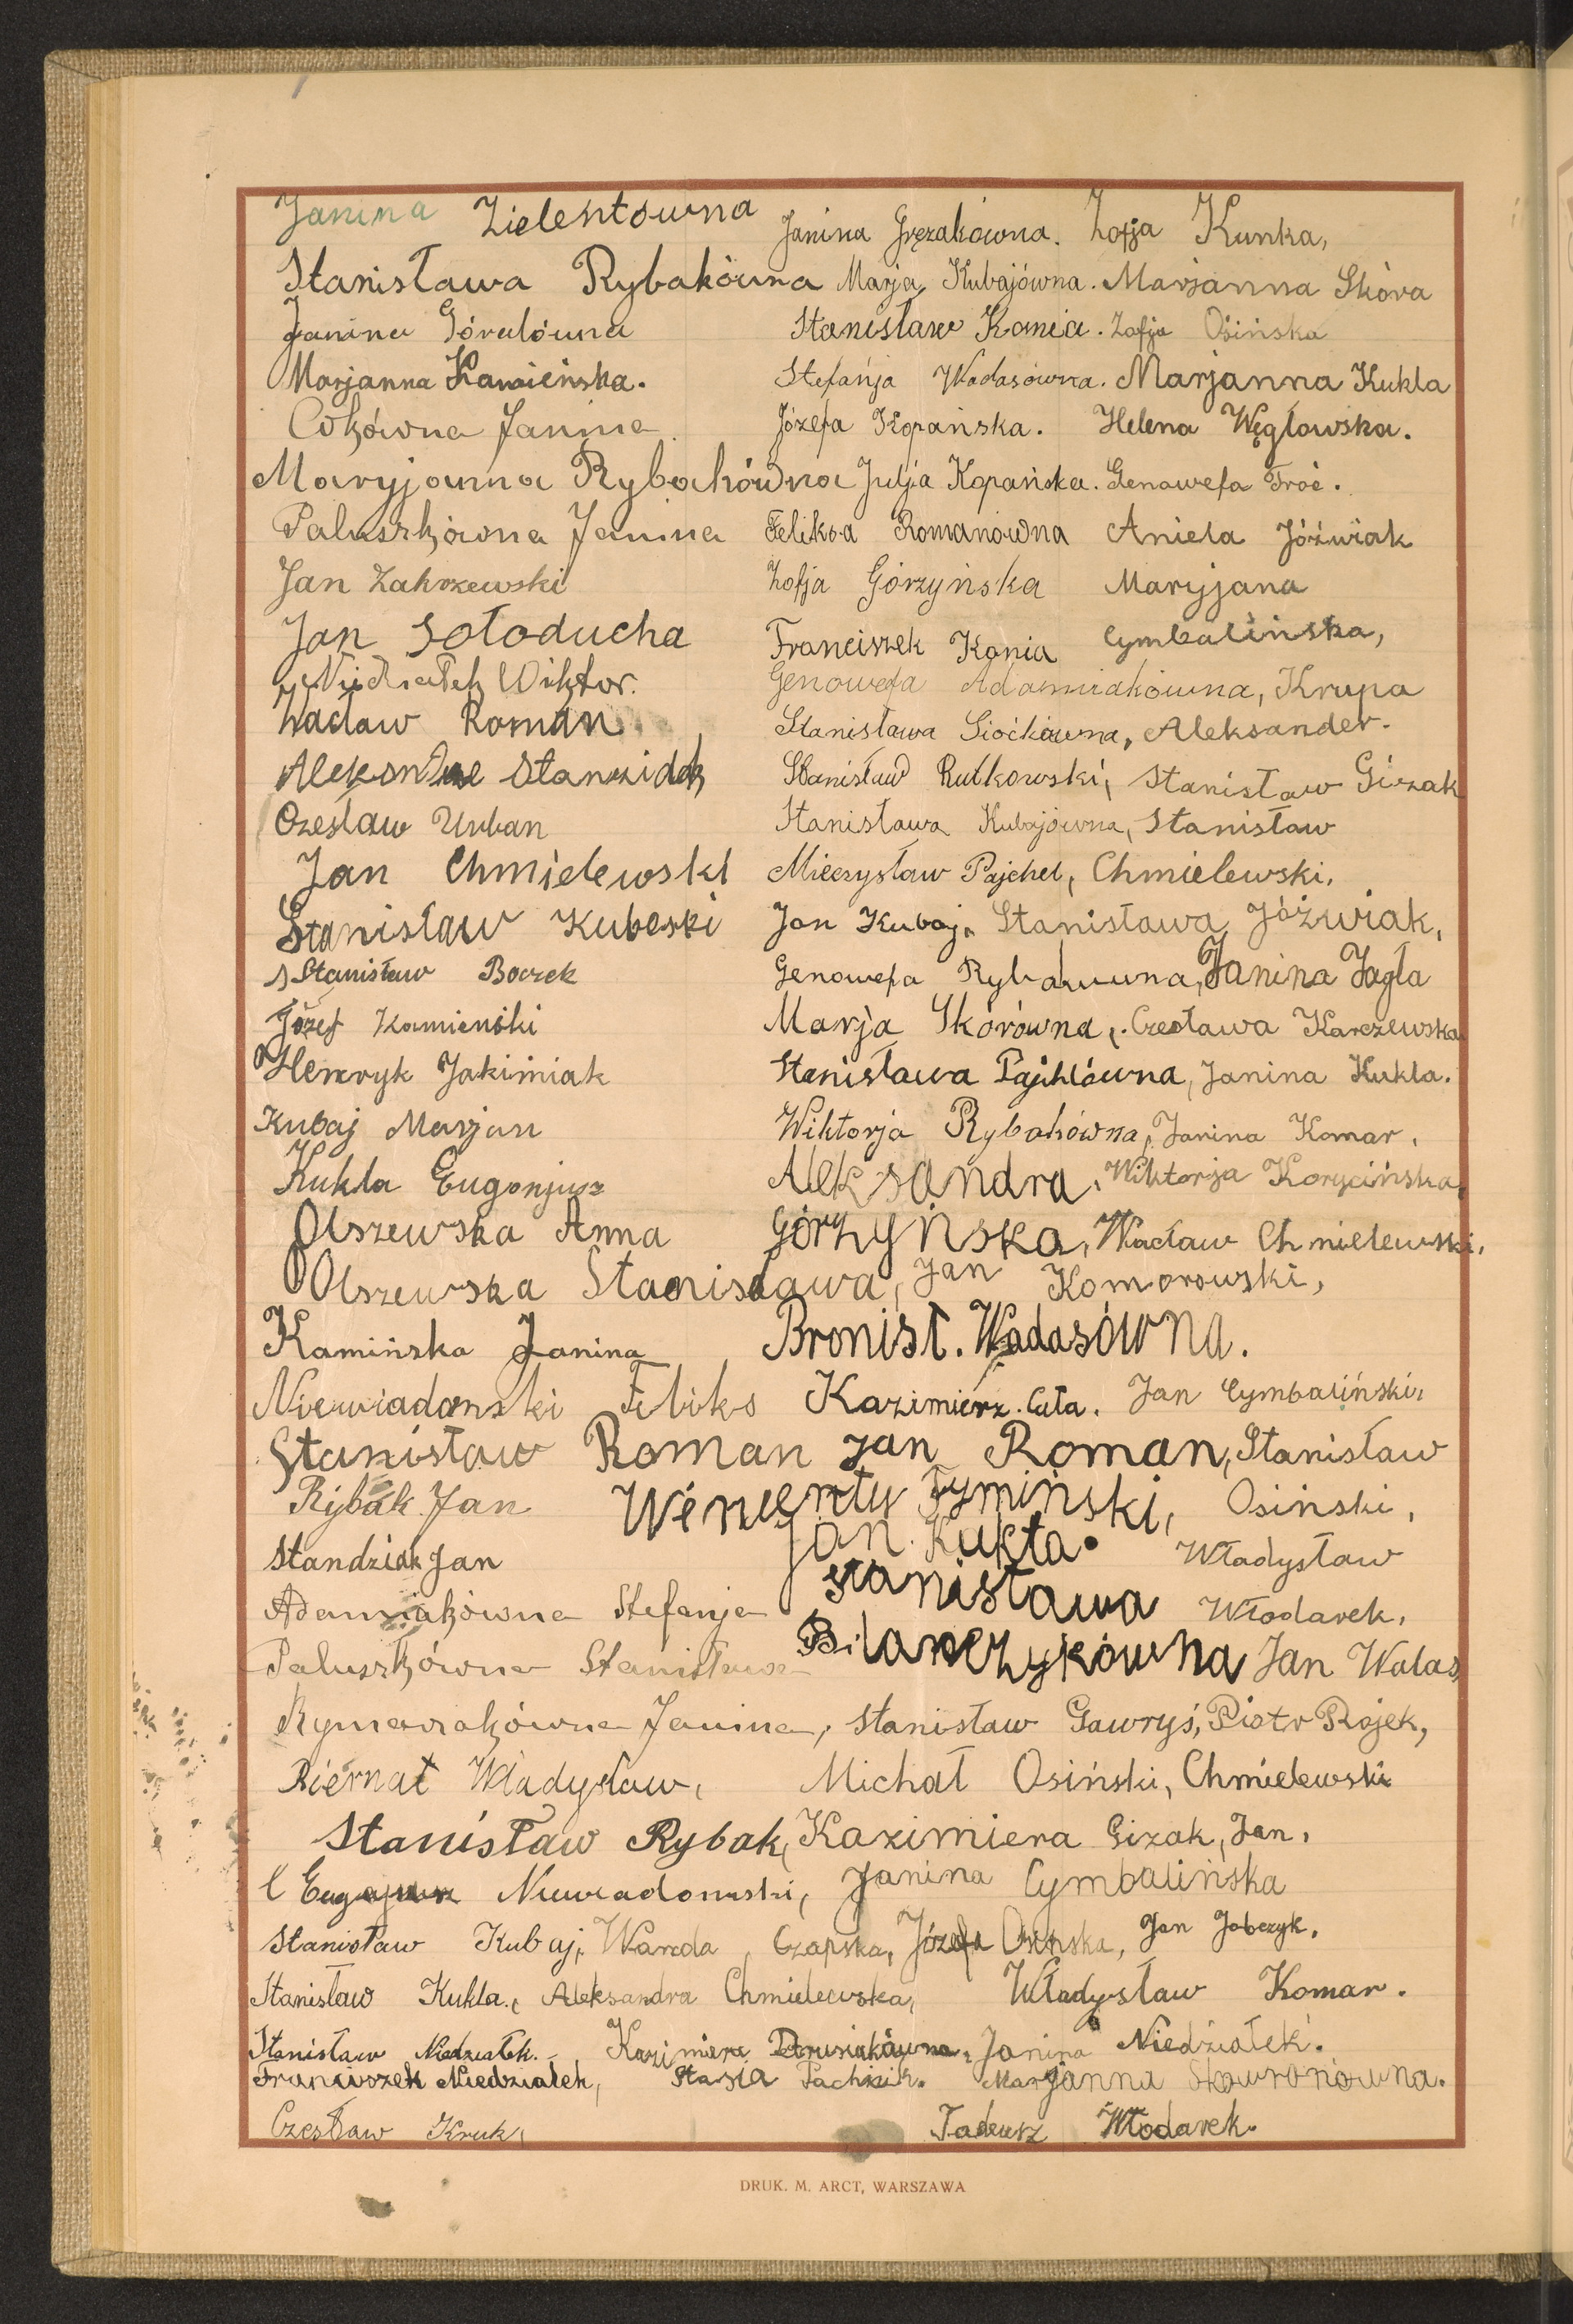 Janina Zielentówna Janina Gręzakówna. Zofja Kunka,
Stanisława Rybakówna Marja Kubajówna. Marjanna Skóra
Janina Góralówna Stanisław Kania. Zofja Osińska
Marjanna Kamieńska. Stefanja Wadasówna. Marjanna Kukla
Janina Józefa Kopańska. Helena Węgłowska.
Maryjanna Rybakówna Julja Kopańska. Genowefa Troć.
Paluszkówna Janina Feliksa Romanówna Aniela Jóźwiak
Jan Zakrzewski Zofja Górzyńska Maryjana
Jan Sołoducha Franciszek Kania Cymbalińska,
Niedziałek Wiktor. Genowefa Adamiakówna, Krupa
Wacław Roman Stanisława Siočkówna, Aleksander.
Stanisław Rutkowski, Stanisław Gizak
Czesław Urban Stanisława Kubajówna, Stanisław
Jan Chmielewski Mieczysław Pajchel, Chmielewski,
Stanisław Kubeski Jan Kubaj, Stanisława Jóżwiak,
Stanisław Boczek Genowefa Janina Jagła
Józef Kamieński Marja Skórówna, Czesława Karczewska
Henryk Jakimiak Stanisława Pajchlówna, Janina Kukla.
Kubaj Marjan Wiktorja Rybakówna, Janina Komar,
Kukla Eugonjusz Aleksandra, Wiktorja Korycińska,
Olszewska Anna Górzyńska, Wacław Chmielewski,
Olszewska Stanisława, Jan Komorowski,
Kamińska Janina, Bronisł. Wadasówna.
Niewiadomski Feliks Kazimierz. Cała. Jan Cymbaliński,
Stanisław Roman Jan Roman, Stanisław
Rybak Jan Wincenty Tymiński, Osiński,
Jan. Kukła.
Standziak Jan Władysław
Adamiakówna Stefanja Stanisława Włodarek,
Paluszkówna Stanisława Bilanczykówna Jan Walas
Rymarakówna Janina, Stanisław Gawryś, Piotr Rojek,
Biernat Władysław, Michał Osiński, Chmielewski
Stanisław Rybak, Kazimiera Gizak, Jan,
Niewiadomski, Janina Cymbalińska
Stanisław Kubaj, Wanda, Czapska, Józefa Osińska, Jan Jobczyk,
Stanisław Kukla., Aleksandra Chmielewska, Władysław Komar.
Stanisław Niedziałek.- Kazimiera Janina Niedziałek.
Franciszek Niedziałek, Stasia Pachnik. Marjanna Skowronówna.
Czesław Kruk, Tadeusz Włodarek.
DRUK. M. ARCT, WARSZAWA